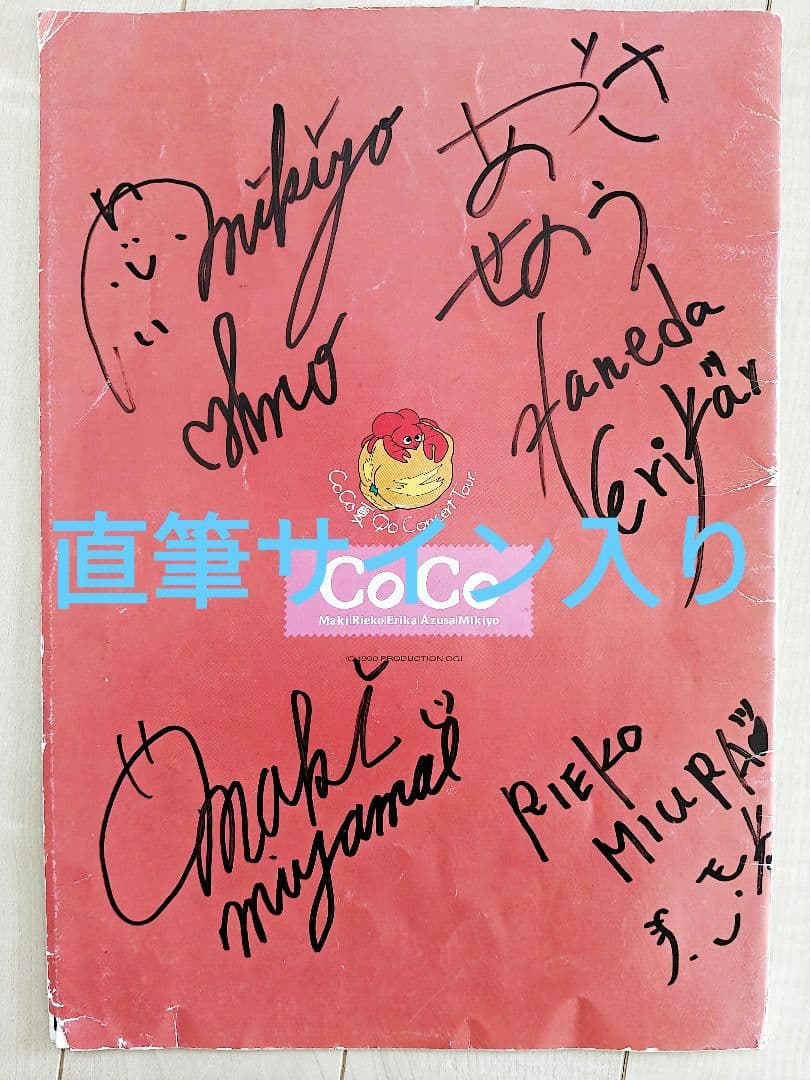 mikiyo
ohno
あづさ
せのう
Haneda
Erika
CoCo 夏 '90 Concert Tour.
直筆サイン入り
CoCo
Maki|Rieko|Erika|Azusa|Mikiyo
©1990 PRODUCTION OGI
maki
miyamae
RIEKO
MIURA